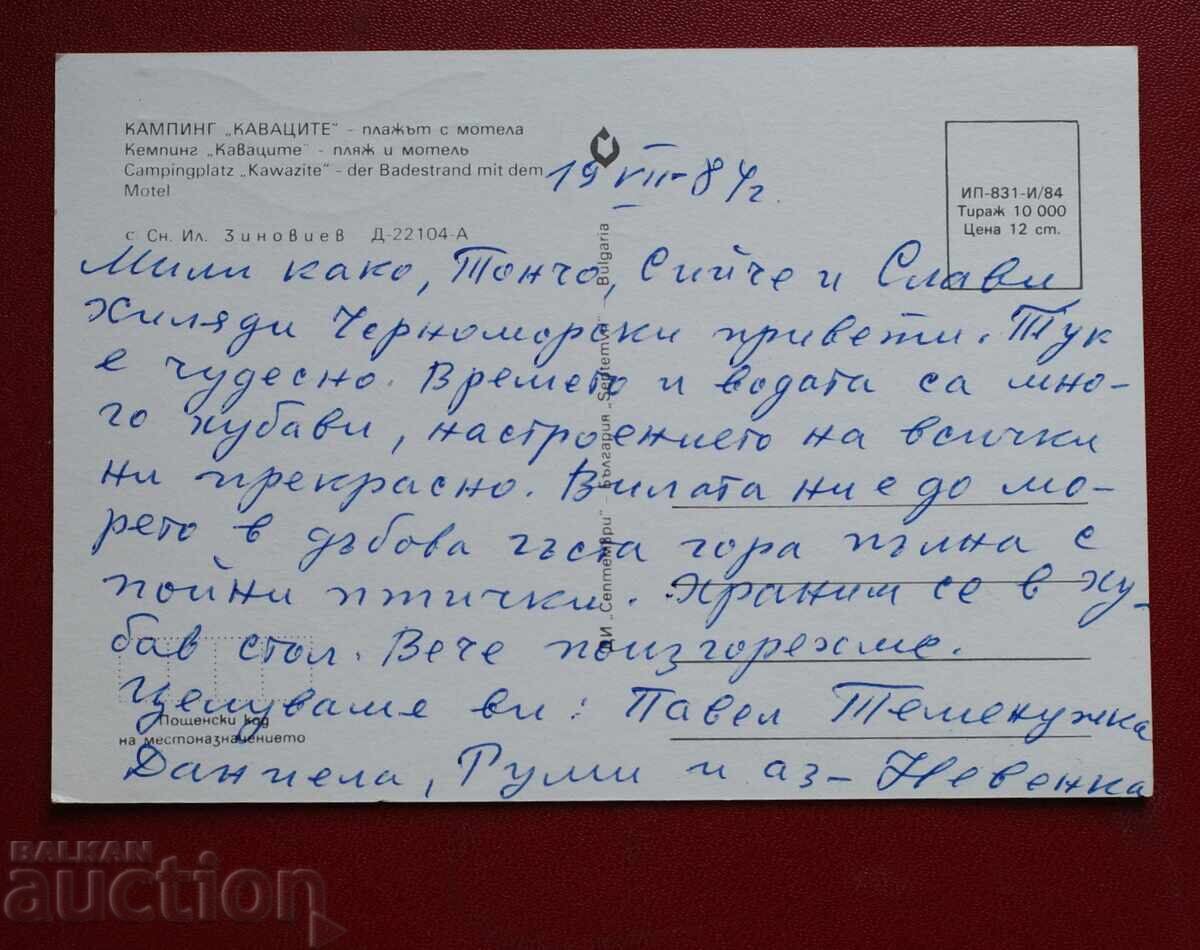 КАМПИНГ „КАВАЦИТЕ" - плажът с мотела
Кемпинг „Каваците" - пляж и мотель
Campingplatz „Kawazite" - der Badestrand mit dem
Motel
с Сн. Ил. Зиновиев Д-22104-А
19 VII-84г.
ИП-831-И/84
Тираж 10 000
Цена 12 ст.
Мили како, Тончо, Сийче и Слави
Хиляди Черноморски привети. Тук
е чудесно. Времето и водата са мно-
го хубави, настроението на всички
ни прекрасно. Вилата ни е до мо-
рето в дъбова гъста гора пълна с
пойни птички. Храним се в ху-
бав стол. Вече поизгоряхме.
Целуваме ви: Павел Теменужка
Даниела, Руми и аз - Невенка
ДИ „Септември" - България „Septemvri" - Bulgaria
Пощенски код
на местоназначението
BALKAN
auction